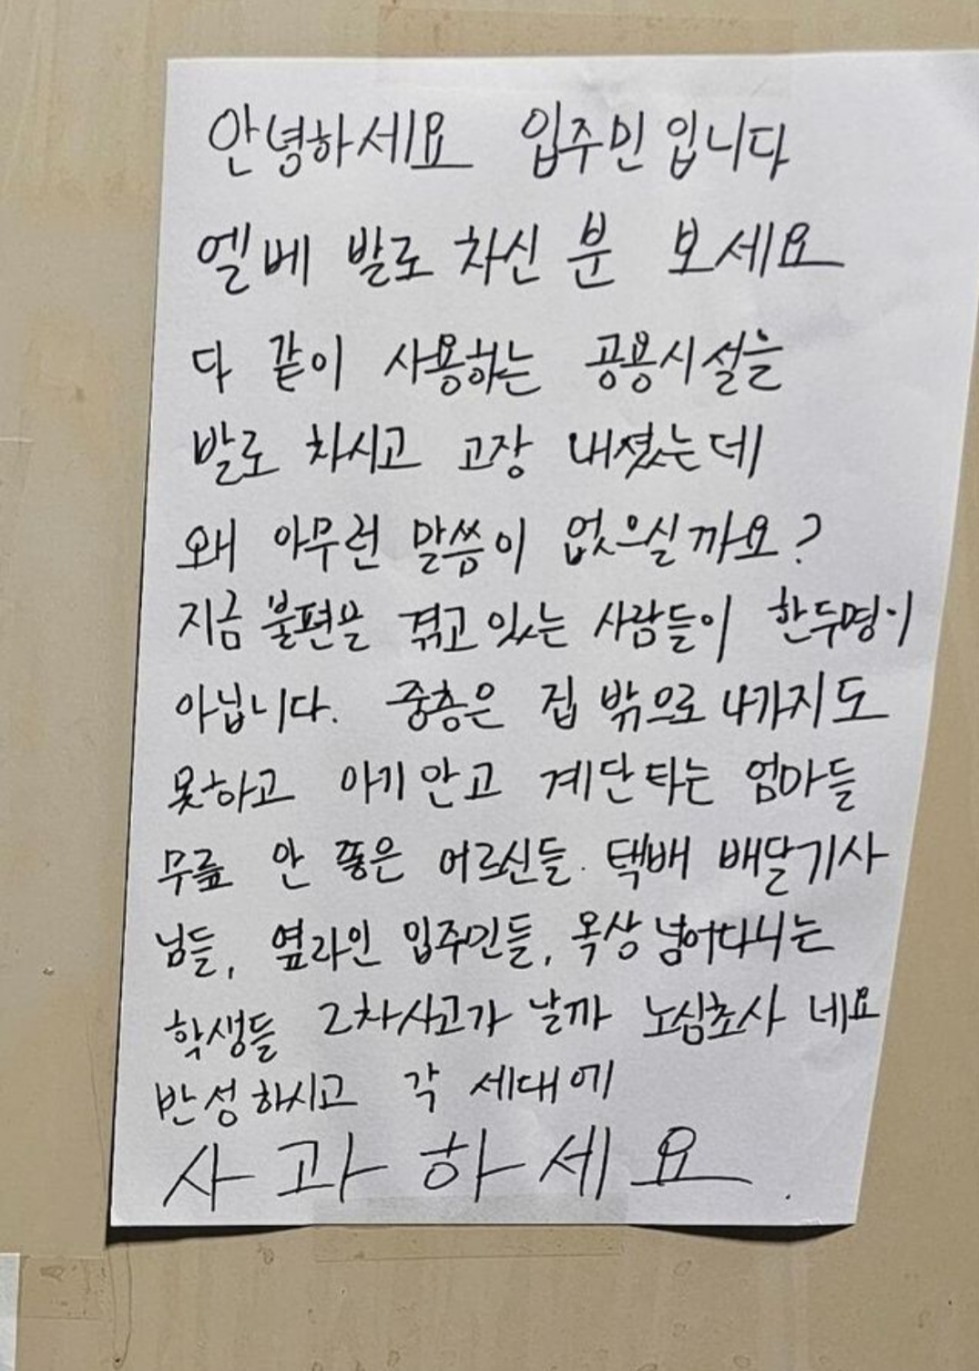 안녕하세요 입주민입니다
엘베 발로 차신 분 보세요
다 같이 사용하는 공용시설을
발로 차시고 고장 내셨는데
왜 아무런 말씀이 없으실까요?
지금 불편을 겪고 있는 사람들이 한두명이
아닙니다. 중층은 집 밖으로 나가지도
못하고 아기 안고 계단 타는 엄마들
무릎 안 좋은 어르신들. 택배 배달기사
님들, 옆라인 입주민들, 옥상 넘어다니는
학생들 2차사고가 날까 노심초사 네요
반성하시고 각 세대에
사과하세요.